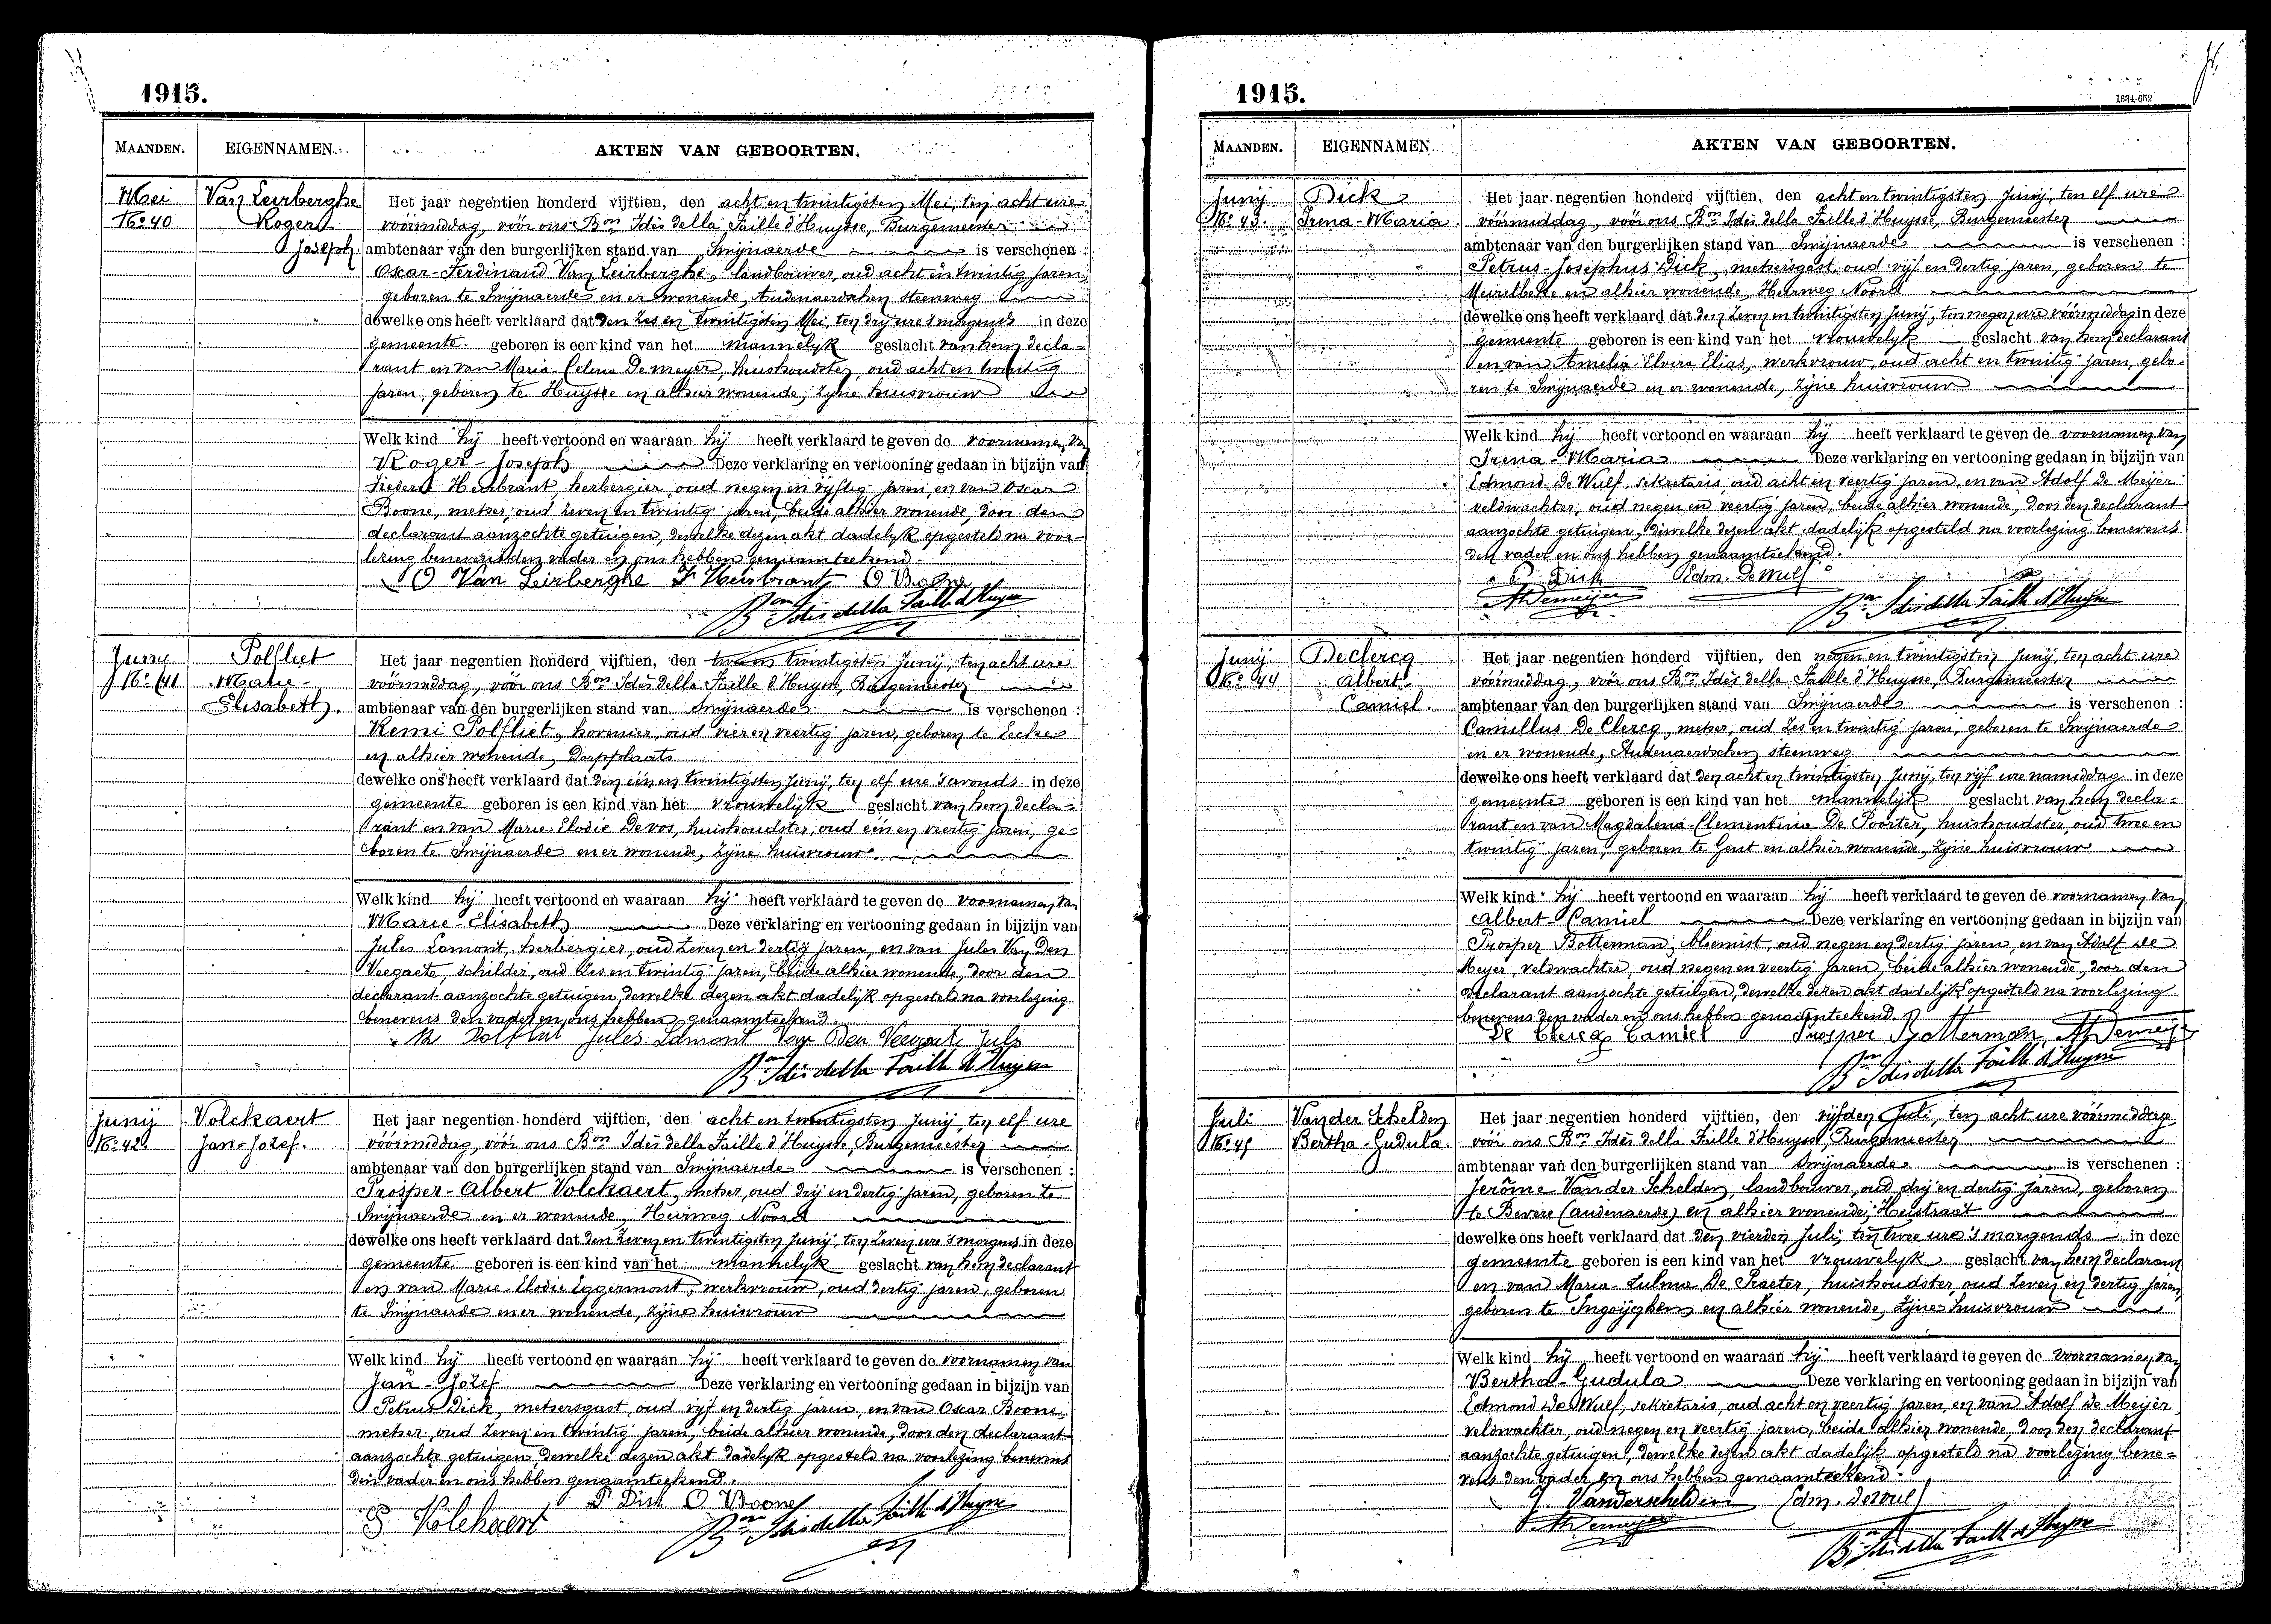 1915.
MAANDEN. EIGENNAMEN. AKTEN VAN GEBOORTEN.
Mei
No 40
Van Leirberghe
Roger
Joseph.
Het jaar negentien honderd vijftien, den acht en twintigsten Mei, ten acht ure
vóórmiddag, vóór ons Bon Idès della Faille d'Huysse, Burgemeester
ambtenaar van den burgerlijken stand van Swijnaerde is verschenen :
Oscar-Ferdinand Van Leirberghe, landbouwer, oud acht en twintig jaren,
geboren te Swijnaerde en er wonende, Audenaerdschen steenweg
dewelke ons heeft verklaard dat den zes en twintigsten Mei, ten drij ure 's morgends in deze
gemeente geboren is een kind van het mannelijk geslacht van hem decla-
rant en van Maria Celina Demeyer, huishoudster, oud acht en twintig
jaren, geboren te Huysse en alhier wonende, zijne huisvrouw
Welk kind hij heeft vertoond en waaraan hij heeft verklaard te geven de voornamen van
Roger-Joseph Deze verklaring en vertooning gedaan in bijzijn van
Heirbrant, herbergier, oud negen en vijftig jaren en van Oscar
Boone, metser, oud zeven en twintig jaren, beide alhier wonende, door den
declarant aanzochte getuigen, dewelke dezen akt dadelijk opgesteld na voor-
lezing benevens den vader en ons hebben genaamteekend.
O Van Leirberghe F Heirbrant O Boone
Bon Idès della Faille d'Huysse
Junij
No 41
Polfliet
Marie-
Elisabeth.
Het jaar negentien honderd vijftien, den twee en twintigsten Junij, ten acht ure
vóórmiddag, vóór ons Bon Idès della Faille d'Huysse, Burgemeester
ambtenaar van den burgerlijken stand van Swijnaerde is verschenen :
Remi Polfliet, hovenier, oud vier en veertig jaren, geboren te Eecke
en alhier wonende, Dorpplaats
dewelke ons heeft verklaard dat den één en twintigsten Junij, ten elf ure 's avonds in deze
gemeente geboren is een kind van het vrouwelijk geslacht van hem decla-
rant en van Marie-Elodie Devos, huishoudster, oud één en veertig jaren, ge-
boren te Swijnaerde en er wonende, zijne huisvrouw.
Welk kind hij heeft vertoond en waaraan hij heeft verklaard te geven de voornamen van
Marie-Elisabeth Deze verklaring en vertooning gedaan in bijzijn van
Jules Lamont, herbergier, oud zeven en dertig jaren, en van Jules Van Den
Veegaete, schilder, oud zes en twintig jaren, beide alhier wonende, door den
declarant aanzochte getuigen, dewelke dezen akt dadelijk opgesteld na voorlezing
benevens den vader en ons hebben genaamteekend.
R Polfliet Jules Lamont Van Den Veegaete Jules
Bon Idès della Faille d'Huysse
Junij
No 42.
Volckaert
Jan-Jozef.
Het jaar negentien honderd vijftien, den acht en twintigsten Junij, ten elf ure
vóórmiddag, vóór ons Bon Idès della Faille d'Huysse, Burgemeester
ambtenaar van den burgerlijken stand van Swijnaerde is verschenen :
Prosper-Albert Volckaert, metser, oud drij en dertig jaren, geboren te
Swijnaerde en er wonende, Heirweg Noord
dewelke ons heeft verklaard dat den zeven en twintigsten Junij, ten zeven ure 's morgens in deze
gemeente geboren is een kind van het mannelijk geslacht van hem declarant
en van Marie-Elodie Eggermont, werkvrouw, oud dertig jaren, geboren
te Swijnaerde en er wonende, zijne huisvrouw
Welk kind hij heeft vertoond en waaraan hij heeft verklaard te geven de voornamen van
Jan-Jozef Deze verklaring en vertooning gedaan in bijzijn van
Petrus Dick, metsersgast, oud vijf en dertig jaren, en van Oscar Boone,
metser, oud zeven en twintig jaren, beide alhier wonende, door den declarant
aanzochte getuigen, dewelke dezen akt dadelijk opgesteld na voorlezing benevens
den vader en ons hebben genaamteekend.
P Volckaert P. Dick O Boone
Bon Idès della Faille d'Huysse
1915.
1634-652
MAANDEN. EIGENNAMEN. AKTEN VAN GEBOORTEN.
Junij
No 43.
Dick
Irena-Maria
Het jaar negentien honderd vijftien, den acht en twintigsten Junij, ten elf ure
vóórmiddag, vóór ons Bon Idès della Faille d'Huysse, Burgemeester
ambtenaar van den burgerlijken stand van Swijnaerde is verschenen :
Petrus-Josephus Dick, metsersgast, oud vijf en dertig jaren, geboren te
Meirelbeke en alhier wonende, Heirweg Noord
dewelke ons heeft verklaard dat den zeven en twintigsten Junij, ten negen ure vóórmiddag in deze
gemeente geboren is een kind van het vrouwelijk geslacht van hem declarant
en van Amelia-Elvira Elias, werkvrouw, oud acht en twintig jaren, gebo-
ren te Swijnaerde en er wonende, zijne huisvrouw
Welk kind hij heeft vertoond en waaraan hij heeft verklaard te geven de voornamen van
Irena-Maria Deze verklaring en vertooning gedaan in bijzijn van
Edmond De Wulf, sekretaris, oud acht en veertig jaren, en van Adolf De Meijer
veldwachter, oud negen en veertig jaren, beide alhier wonende, door den declarant
aanzochte getuigen, dewelke dezen akt dadelijk opgesteld na voorlezing benevens
den vader en ons hebben genaamteekend.
P Dick Edm. De Wulf
A Demeijer Bon Idès della Faille d'Huysse
Junij
No 44
Declercq
Albert-
Camiel.
Het jaar negentien honderd vijftien, den negen en twintigsten Junij, ten acht ure
vóórmiddag, vóór ons Bon Idès della Faille d'Huysse, Burgemeester
ambtenaar van den burgerlijken stand van Swijnaerde is verschenen :
Camillus De Clercq, metser, oud zes en twintig jaren, geboren te Swijnaerde
en er wonende, Audenaerdschen steenweg
dewelke ons heeft verklaard dat den acht en twintigsten Junij, ten vijf ure namiddag in deze
gemeente geboren is een kind van het mannelijk geslacht van hem decla-
rant en van Magdalena-Clementina De Poorter, huishoudster, oud twee en
twintig jaren, geboren te Gent en alhier wonende, zijne huisvrouw
Welk kind hij heeft vertoond en waaraan hij heeft verklaard te geven de voornamen van
Albert-Camiel Deze verklaring en vertooning gedaan in bijzijn van
Prosper Botterman, bloemist, oud negen en dertig jaren, en van Adolf De
Meyer, veldwachter, oud negen en veertig jaren, beide alhier wonende, door den
declarant aanzochte getuigen, dewelke dezen akt dadelijk opgesteld na voorlezing
benevens den vader en ons hebben genaamteekend.
De Clercq Camiel Prosper Botterman A Demeijer
Bon Idès della Faille d'Huysse
Juli
No 45
Van der Schelden
Bertha-Gudula.
Het jaar negentien honderd vijftien, den vijfden Juli, ten acht ure vóórmiddag,
vóór ons Bon Idès della Faille d'Huysse Burgemeester
ambtenaar van den burgerlijken stand van Swijnaerde is verschenen :
Jerôme Van der Schelden, landbouwer, oud drij en dertig jaren, geboren
te Bevere (Audenaerde) en alhier wonende, Heistraat
dewelke ons heeft verklaard dat den vierden Juli, ten twee ure 's morgends in deze
gemeente geboren is een kind van het vrouwelijk geslacht van hem declarant
en van Maria-Zulma De Praeter, huishoudster, oud zeven en dertig jaren,
geboren te Ingoijghem en alhier wonende, zijne huisvrouw
Welk kind hij heeft vertoond en waaraan hij heeft verklaard te geven de voornamen van
Bertha-Gudula Deze verklaring en vertooning gedaan in bijzijn van
Edmond De Wulf, sekretaris, oud acht en veertig jaren, en van Adolf De Meijer
veldwachter, oud negen en veertig jaren, beide alhier wonende, door den declarant
aanzochte getuigen, dewelke dezen akt dadelijk opgesteld na voorlezing bene-
vens den vader en ons hebben genaamteekend.
J. Vanderschelden Edm. De Wulf
A Demeijer
Bon Idès della Faille d'Huysse